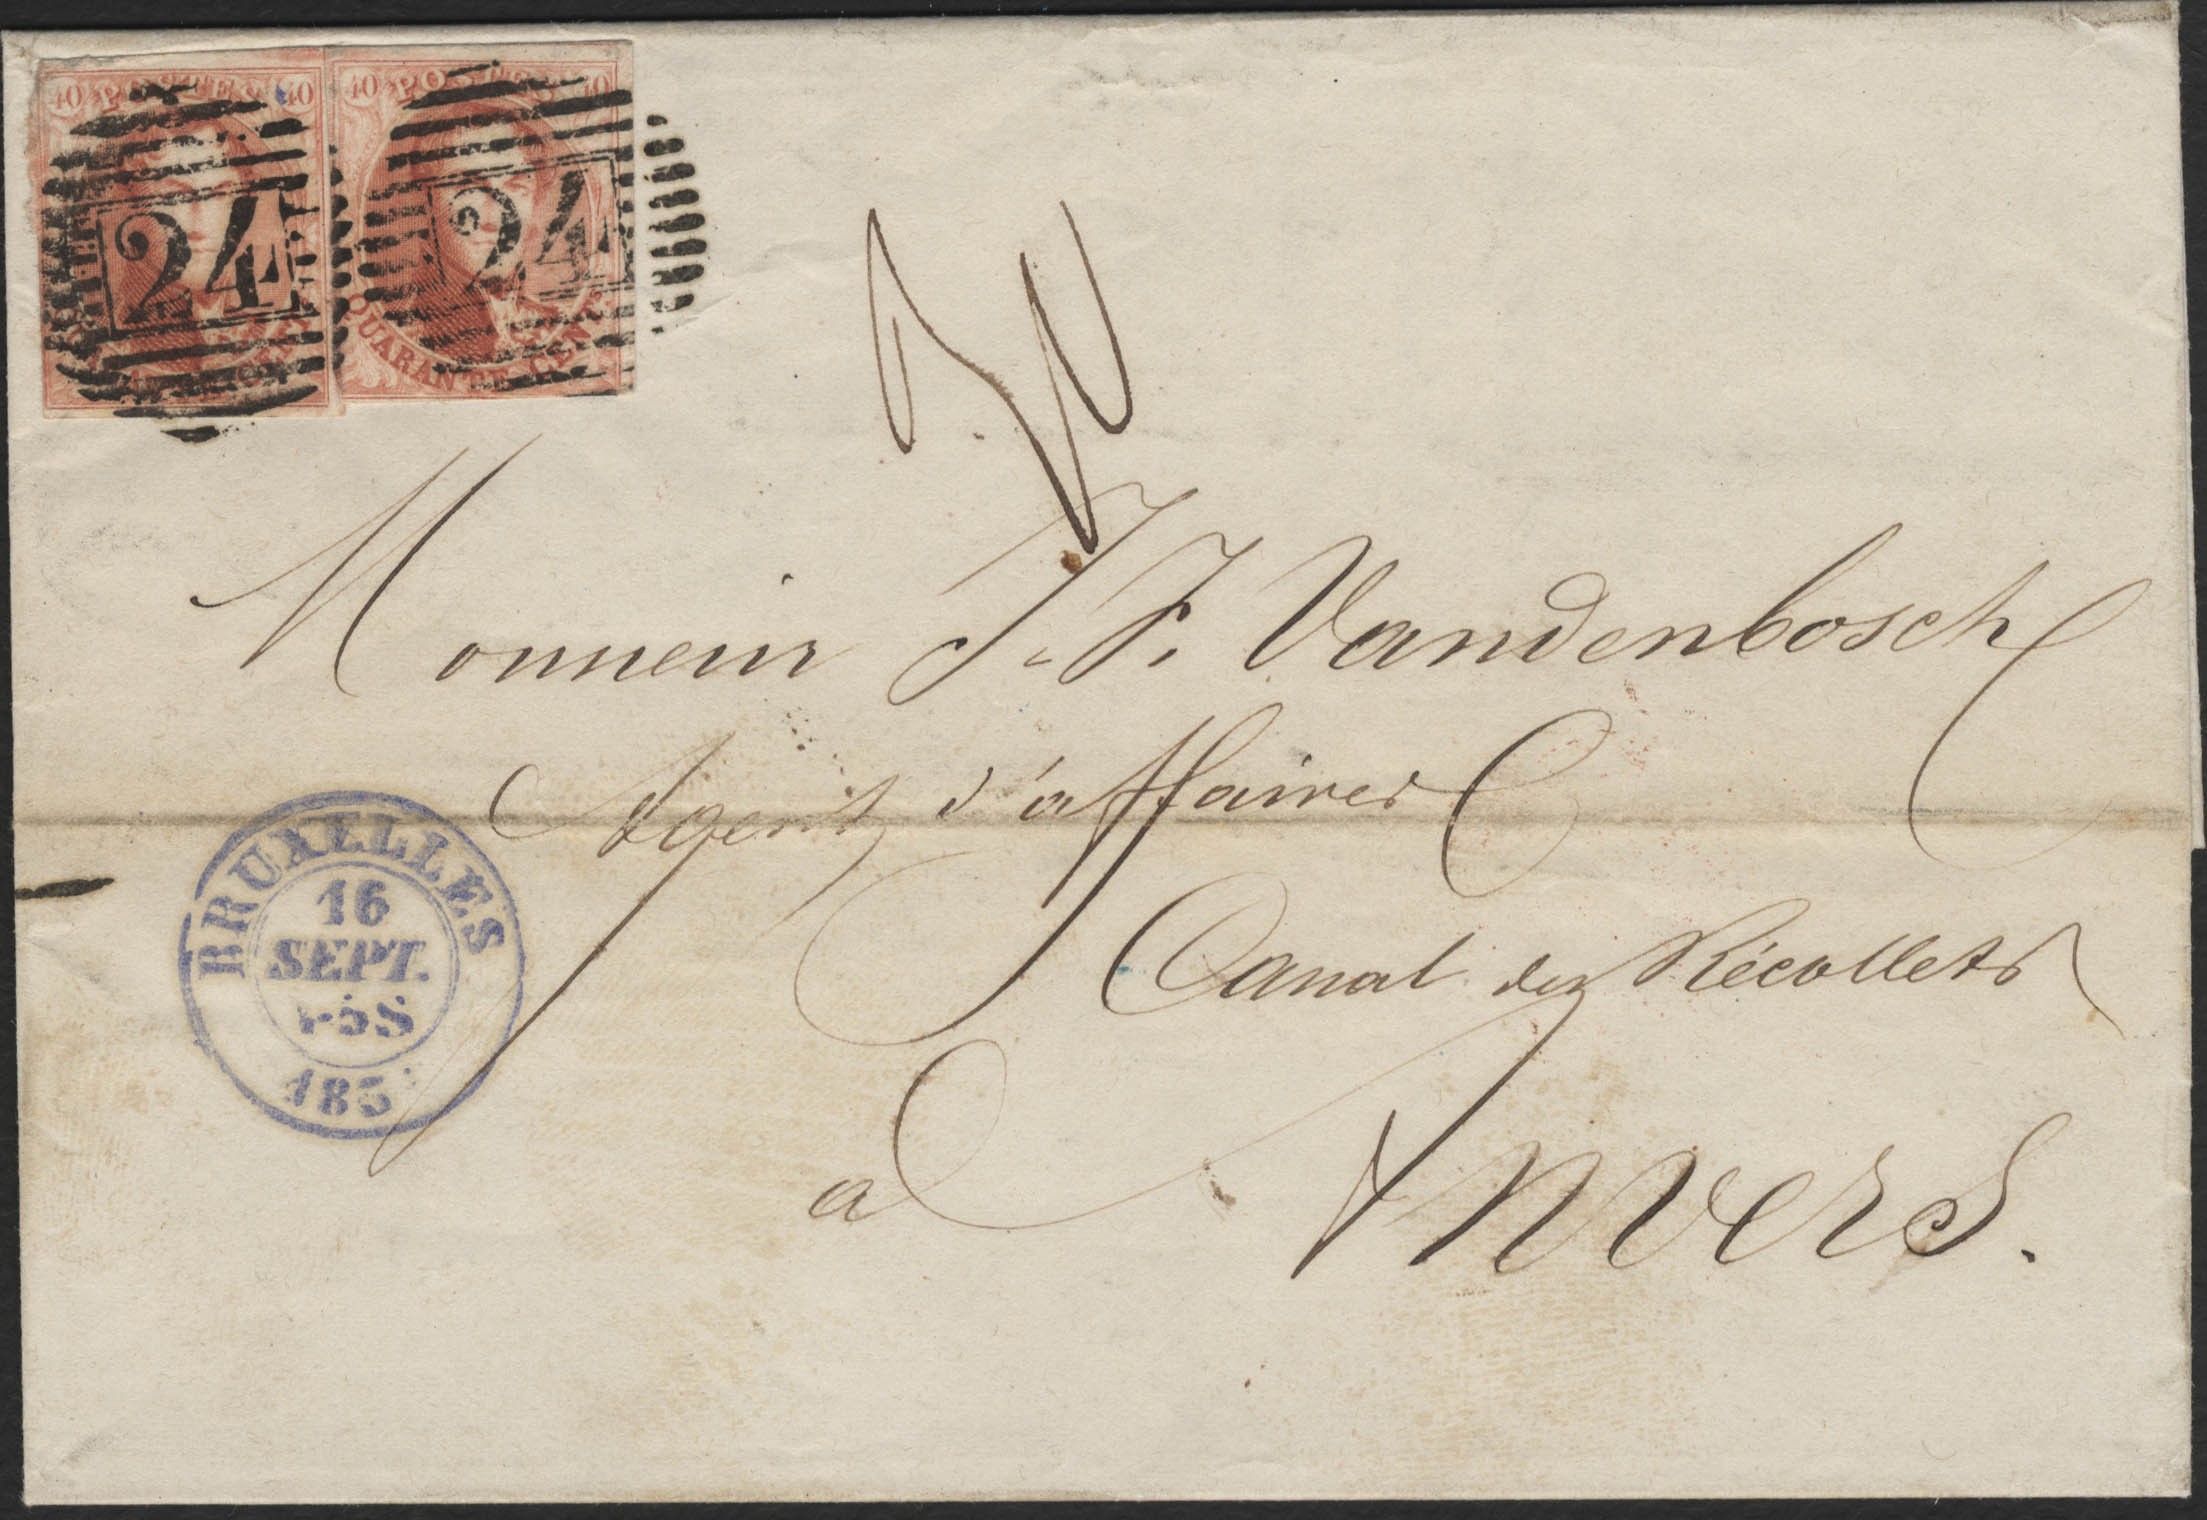 40 POSTES 40
24
QUARANTE CENT
40 POSTES 40
24
QUARANTE CENT
Monsieur J. F. Vandenbosch
Agent d'affaires
Canal des Récollets
a Anvers.
BRUXELLES
16
SEPT.
4-5S
185